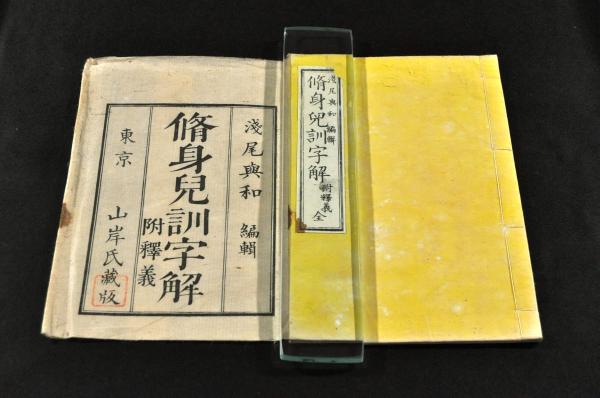 淺尾與和 編輯
脩身兒訓字解
附釋義
東京 山岸氏藏版
淺尾與和 編輯
脩身兒訓字解
附釋義 全